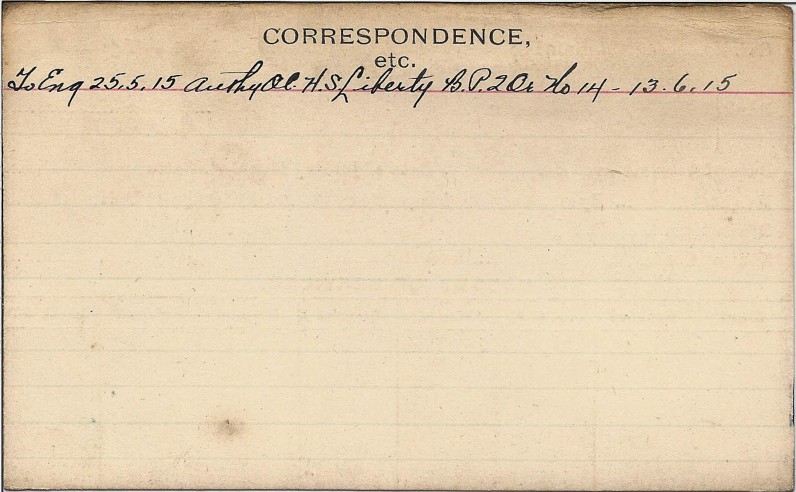 CORRESPONDENCE,
etc.
To Eng 25.5.15 Authy OC. H.S Liberty B.P.2 Or No 14 - 13.6.15